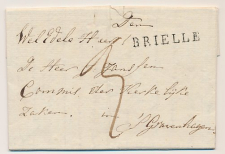 Den
WelEdele Heer
BRIELLE
De Heer Janssen
Commis der Kerkelyke
Zaken in
's Gravenhagen